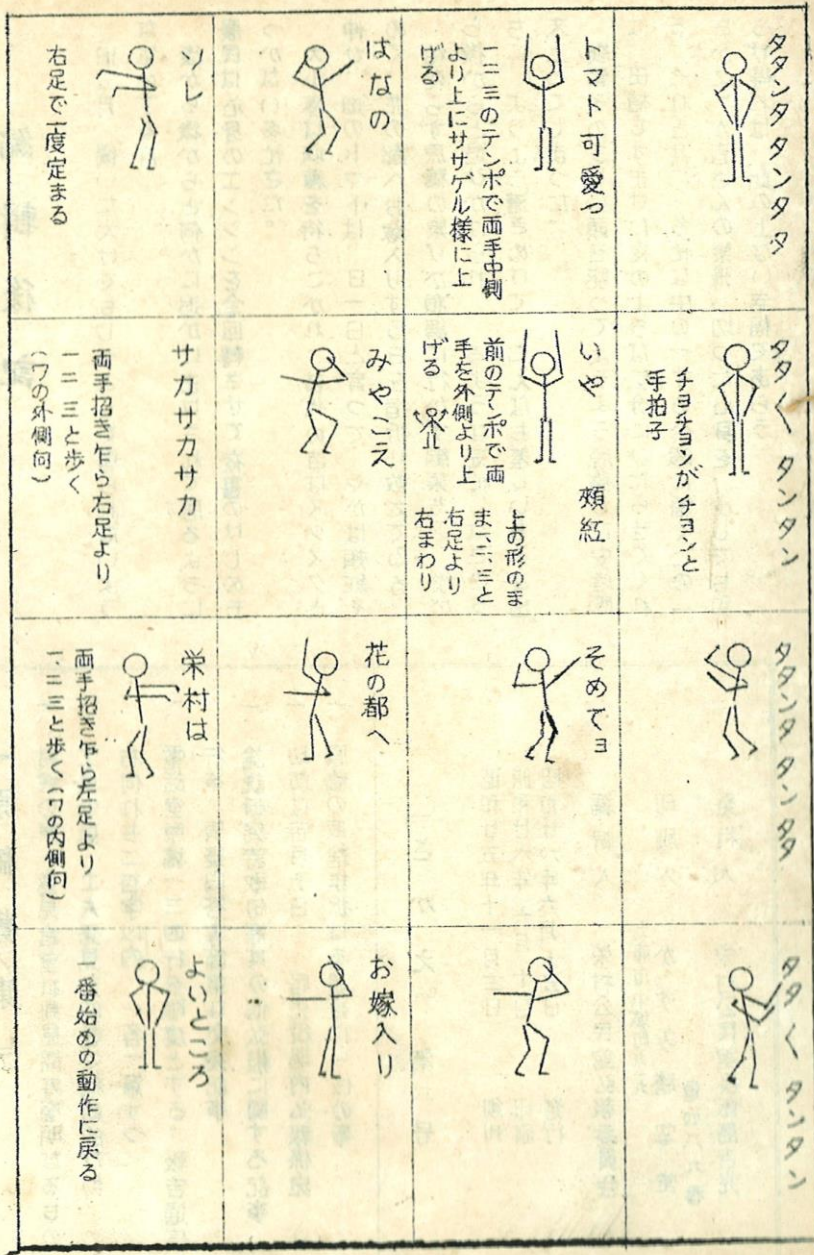 タタンタ タンタタ
タタく タンタン
チョチョンガ チョンと
手拍子
タタンタ タンタタ
タタく タンタン
トマト可愛つ
一二三のテンポで両手中側
より上にササゲル様に上
げる
いや 頰紅
前のテンポで両
手を外側より上
げる
上の形のま
ま一、二、三と
右足より
右まわり
そめてョ
はなの
みやこえ
花の都へ
お嫁入り
ソレ
右足で一度定まる
サカサカサカ
両手招き乍ら右足より
一二三と歩く
(ワの外側向)
栄村は
両手招き乍ら左足より
一、二三と歩く(ワの内側向)
よいところ
一番始めの動作に戻る